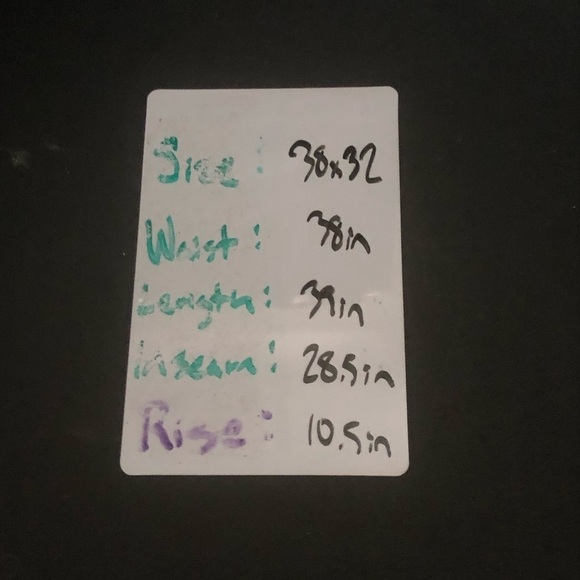 Size: 38x32
Waist: 38in
Length: 39in
Inseam: 28.5in
Rise: 10.5in